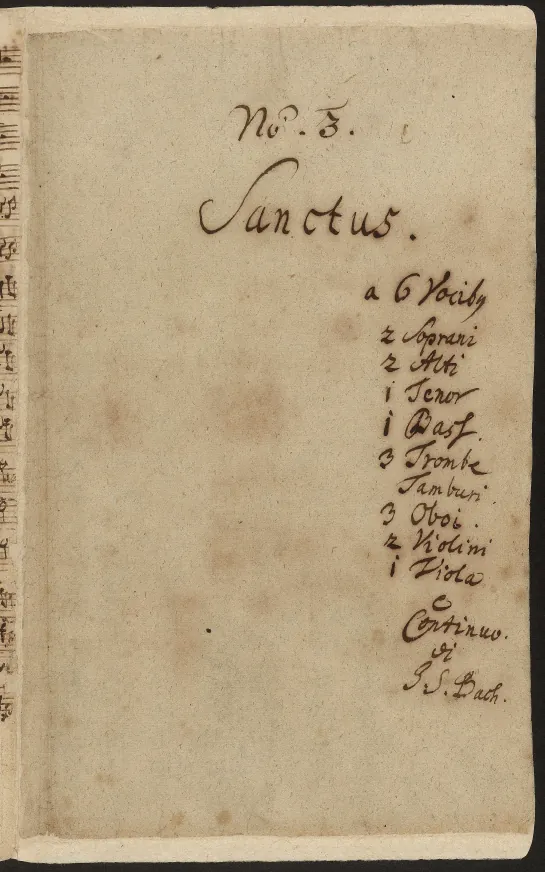 No. 3.
Sanctus.
a 6 Vocibq
2 Soprani
2 Alti
1 Tenor
1 Bass.
3 Trombe
Tamburi.
3 Oboi.
2 Violini
1 Viola
e
Continuo.
di
J. S. Bach.